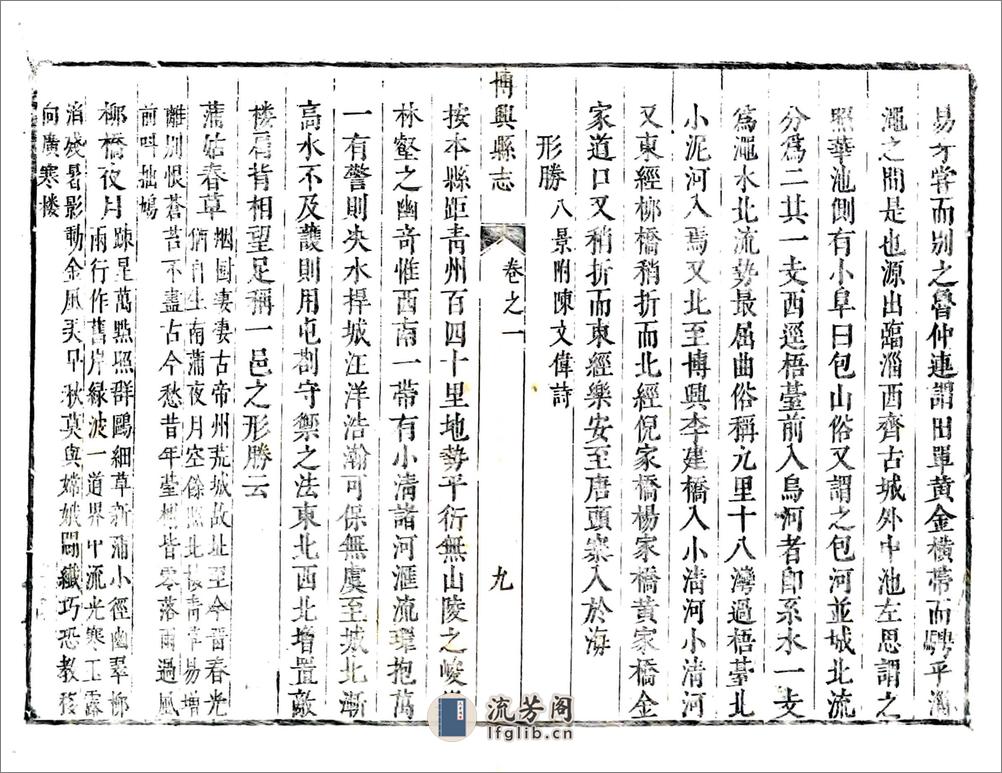 易牙嘗而別之魯仲連謂田單黃金橫帶而騁乎淄
澠之間是也源出臨淄西齊古城外中池左思謂之
照華池側有小阜曰包山俗又謂之包河並城北流
分爲二其一支西逕梧臺前入烏河者卽系水一支
爲澠水北流勢最屈曲俗稱九里十八灣過梧臺北
小泥河入焉又北至博興李建橋入小清河小清河
又東經柳橋稍折而北經倪家橋楊家橋黃家橋金
家道口又稍折而東經樂安至唐頭寨入於海
形勝 八景附陳文偉詩
博興縣志
卷之一
九
按本縣距靑州百四十里地勢平衍無山陵之峻
林壑之幽奇惟西南一帶有小清諸河滙流環抱萬
一有警則决水捍城汪洋浩瀚可保無虞至城北漸
高水不及護則用屯劄守禦之法東北西北增置敵
楼肩背相望足稱一邑之形勝云
蒲姑春草 烟囯凄凄古帝州荒城故址至今畱春光
自生南蒲夜月空餘照北易增
離別恨蒼苔不盡古今愁昔年臺榭皆零落雨過風
前呌拙鳩
柳橋夜月 踈星萬點照群鷗細草新蒲小徑幽翠柳
兩行作舊岸綠波一道界中流光寒玉露
消殘暑影動金風美早秋莫與嫦娥鬪纎巧恐教移
向廣寒楼
流芳阁
lfglib.cn